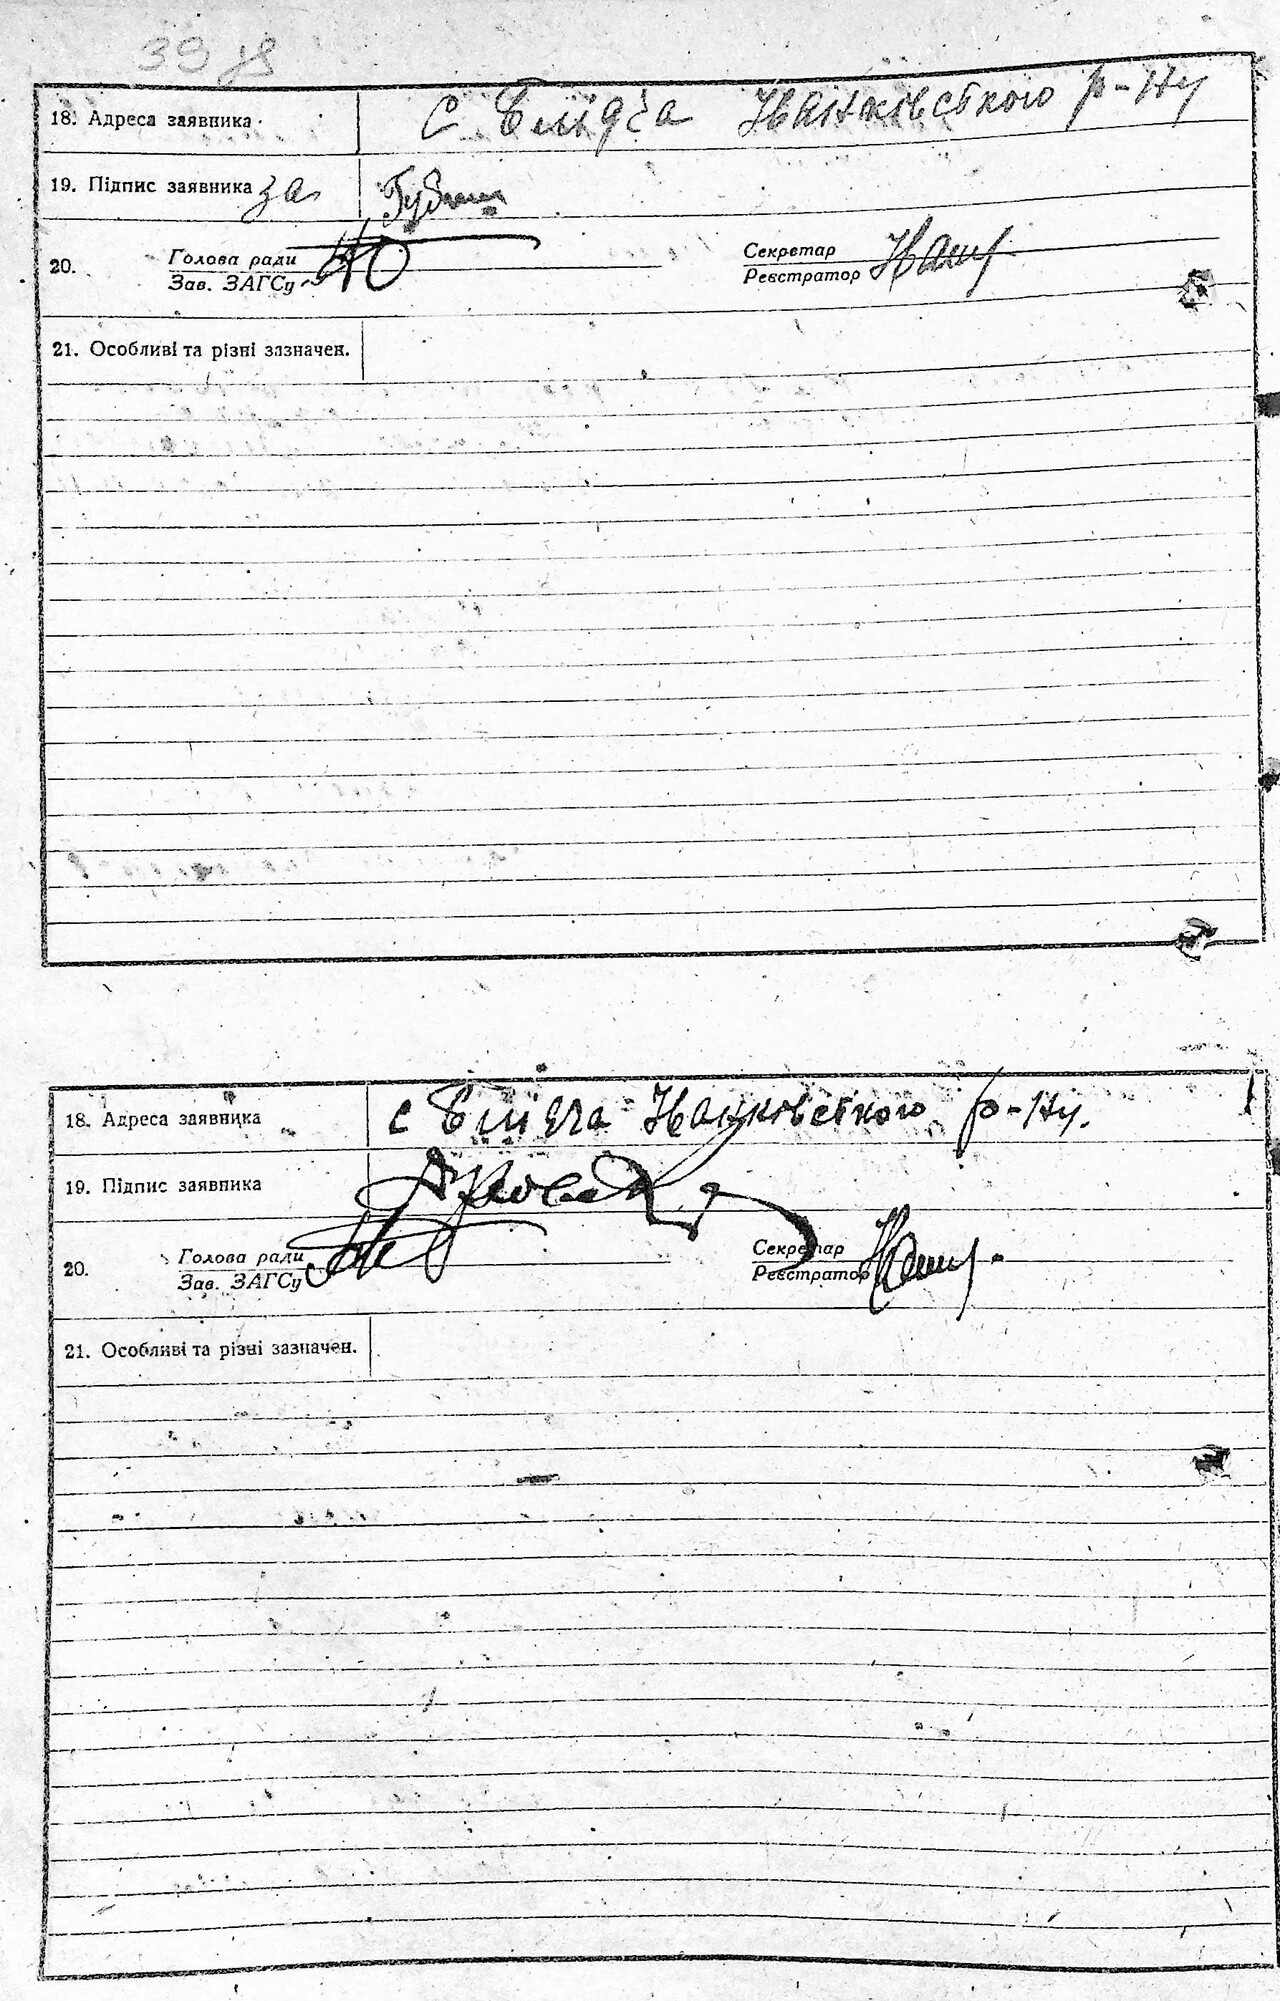 39
18. Адреса заявника с Білява Іванківського р-ну
19. Підпис заявника за
Голова ради Секретар
20.
Зав. ЗАГСу Реєстратор
21. Особливі та різні зазначен.
18. Адреса заявника с Іванківського р-ну.
19. Підпис заявника
Голова ради Секретар
20.
Зав. ЗАГСу Реєстратор
21. Особливі та різні зазначен.